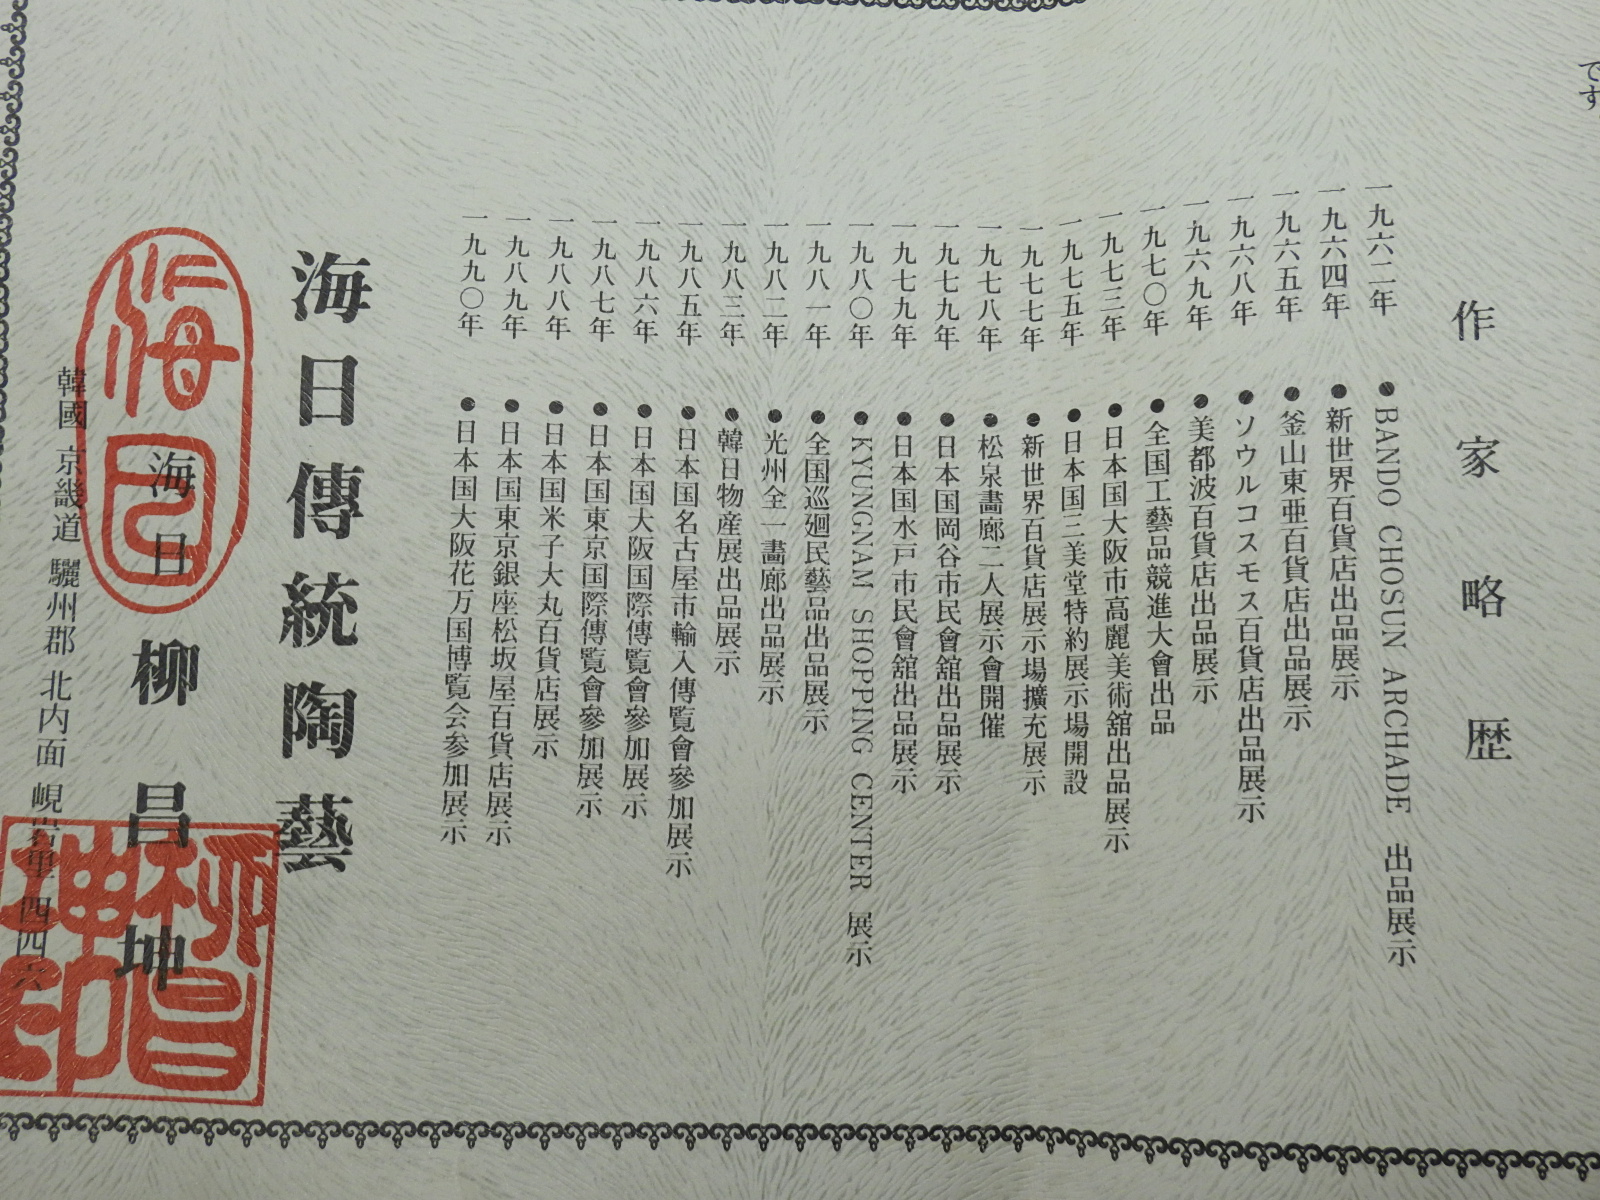 です
作家略歴
一九六二年 ●BANDO CHOSUN ARCHADE 出品展示
一九六四年 ●新世界百貨店出品展示
一九六五年 ●釜山東亜百貨店出品展示
一九六八年 ●ソウルコスモス百貨店出品展示
一九六九年 ●美都波百貨店出品展示
一九七〇年 ●全国工藝品競進大會出品
一九七三年 ●日本国大阪市高麗美術舘出品展示
一九七五年 ●日本国三美堂特約展示場開設
一九七七年 ●新世界百貨店展示場擴充展示
一九七八年 ●松泉畵廊二人展示會開催
一九七九年 ●日本国岡谷市民會舘出品展示
一九七九年 ●日本国水戸市民會舘出品展示
一九八〇年 ●KYUNGNAM SHOPPING CENTER 展示
一九八一年 ●全国巡廻民藝品出品展示
一九八二年 ●光州全一畵廊出品展示
一九八三年 ●韓日物産展出品展示
一九八五年 ●日本国名古屋市輸入傳覧會參加展示
一九八六年 ●日本国大阪国際傳覧會參加展示
一九八七年 ●日本国東京国際傳覧會參加展示
一九八八年 ●日本国米子大丸百貨店展示
一九八九年 ●日本国東京銀座松坂屋百貨店展示
一九九〇年 ●日本国大阪花万国博覧会参加展示
海日傳統陶藝
海日 柳昌坤
韓國 京畿道 驪州郡 北内面 峴岩里 四四六
海日
柳昌坤印